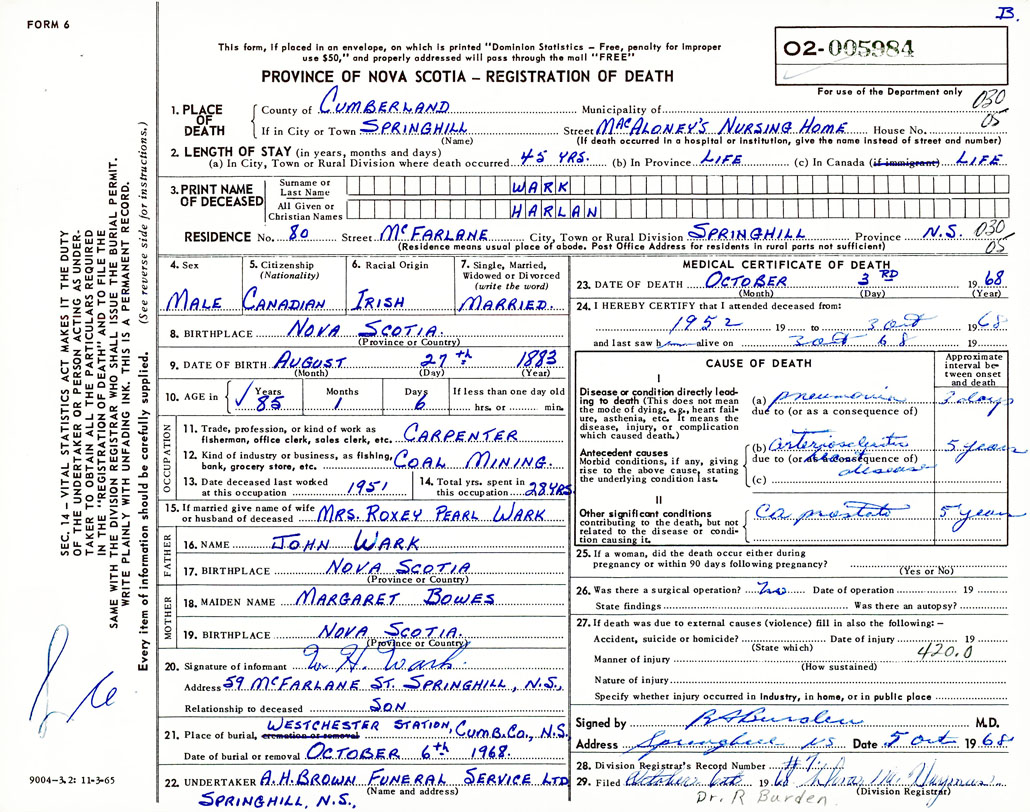 B.
FORM 6
This form, if placed in an envelope, on which is printed "Dominion Statistics – Free, penalty for improper
use $50," and properly addressed will pass through the mail "FREE"
02-005984
PROVINCE OF NOVA SCOTIA – REGISTRATION OF DEATH
For use of the Department only
030
05
1. PLACE OF DEATH
County of CUMBERLAND Municipality of
If in City or Town SPRINGHILL Street MACALONEY'S NURSING HOME House No.
(Name) (If death occurred in a hospital or institution, give the name instead of street and number)
2. LENGTH OF STAY (in years, months and days)
(a) In City, Town or Rural Division where death occurred 45 YRS. (b) In Province LIFE (c) In Canada (if immigrant) LIFE
3. PRINT NAME OF DECEASED
Surname or Last Name WARK
All Given or Christian Names HARLAN
RESIDENCE No. 80 Street MCFARLANE City, Town or Rural Division SPRINGHILL Province N.S. 030
(Residence means usual place of abode. Post Office Address for residents in rural parts not sufficient) 05
4. Sex MALE
5. Citizenship (Nationality) CANADIAN
6. Racial Origin IRISH
7. Single, Married, Widowed or Divorced (write the word) MARRIED.
8. BIRTHPLACE NOVA SCOTIA.
(Province or Country)
9. DATE OF BIRTH AUGUST 27th 1883
(Month) (Day) (Year)
10. AGE in Years 85 Months 1 Days 6 If less than one day old
hrs. or min.
OCCUPATION
11. Trade, profession, or kind of work as
fisherman, office clerk, sales clerk, etc. CARPENTER
12. Kind of industry or business, as fishing,
bank, grocery store, etc. COAL MINING.
13. Date deceased last worked
at this occupation 1951
14. Total yrs. spent in
this occupation 28 YRS
15. If married give name of wife
or husband of deceased MRS. ROXEY PEARL WARK
FATHER
16. NAME JOHN WARK
17. BIRTHPLACE NOVA SCOTIA
(Province or Country)
MOTHER
18. MAIDEN NAME MARGARET BOWES
19. BIRTHPLACE NOVA SCOTIA.
(Province or Country)
20. Signature of informant W. H. Wark.
Address 59 MCFARLANE ST. SPRINGHILL, N.S.,
Relationship to deceased SON
21. Place of burial, cremation or removal WESTCHESTER STATION, CUMB.CO., N.S.
Date of burial or removal OCTOBER 6th 1968.
22. UNDERTAKER A.H. BROWN FUNERAL SERVICE LTD
(Name and address)
SPRINGHILL, N.S.,
MEDICAL CERTIFICATE OF DEATH
23. DATE OF DEATH OCTOBER 3RD 1968
(Month) (Day) (Year)
24. I HEREBY CERTIFY that I attended deceased from:
1952 19 to 3 Oct 1968
and last saw h alive on 3 Oct 68 19
CAUSE OF DEATH
Approximate interval between onset and death
I
Disease or condition directly lead-
ing to death (This does not mean
the mode of dying, e.g., heart fail-
ure, asthenia, etc. It means the
disease, injury, or complication
which caused death.)
(a) pneumonia 3 days
due to (or as a consequence of)
Antecedent causes
Morbid conditions, if any, giving
rise to the above cause, stating
the underlying condition last.
(b) arteriosclerotic 5 years
due to (or as a consequence of) heart disease
(c)
II
Other significant conditions
contributing to the death, but not
related to the disease or condi-
tion causing it.
Ca prostate 5 years
25. If a woman, did the death occur either during
pregnancy or within 90 days following pregnancy?
(Yes or No)
26. Was there a surgical operation? no Date of operation 19
State findings Was there an autopsy?
27. If death was due to external causes (violence) fill in also the following: –
Accident, suicide or homicide? Date of injury 19
(State which) 420.0
Manner of injury
(How sustained)
Nature of injury
Specify whether injury occurred in industry, in home, or in public place
Signed by R A Burden M.D.
Address Springhill NS Date 5 Oct 1968
28. Division Registrar's Record Number #7
29. Filed October 6th 1968
(Division Registrar)
Dr. R Burden
SEC. 14 – VITAL STATISTICS ACT MAKES IT THE DUTY
OF THE UNDERTAKER OR PERSON ACTING AS UNDER-
TAKER TO OBTAIN ALL THE PARTICULARS REQUIRED
IN THE "REGISTRATION OF DEATH" AND TO FILE THE
SAME WITH THE DIVISION REGISTRAR WHO SHALL ISSUE THE BURIAL PERMIT.
WRITE PLAINLY WITH UNFADING INK. THIS IS A PERMANENT RECORD.
Every item of information should be carefully supplied. (See reverse side for instructions.)
9004-3.2: 11-3-65